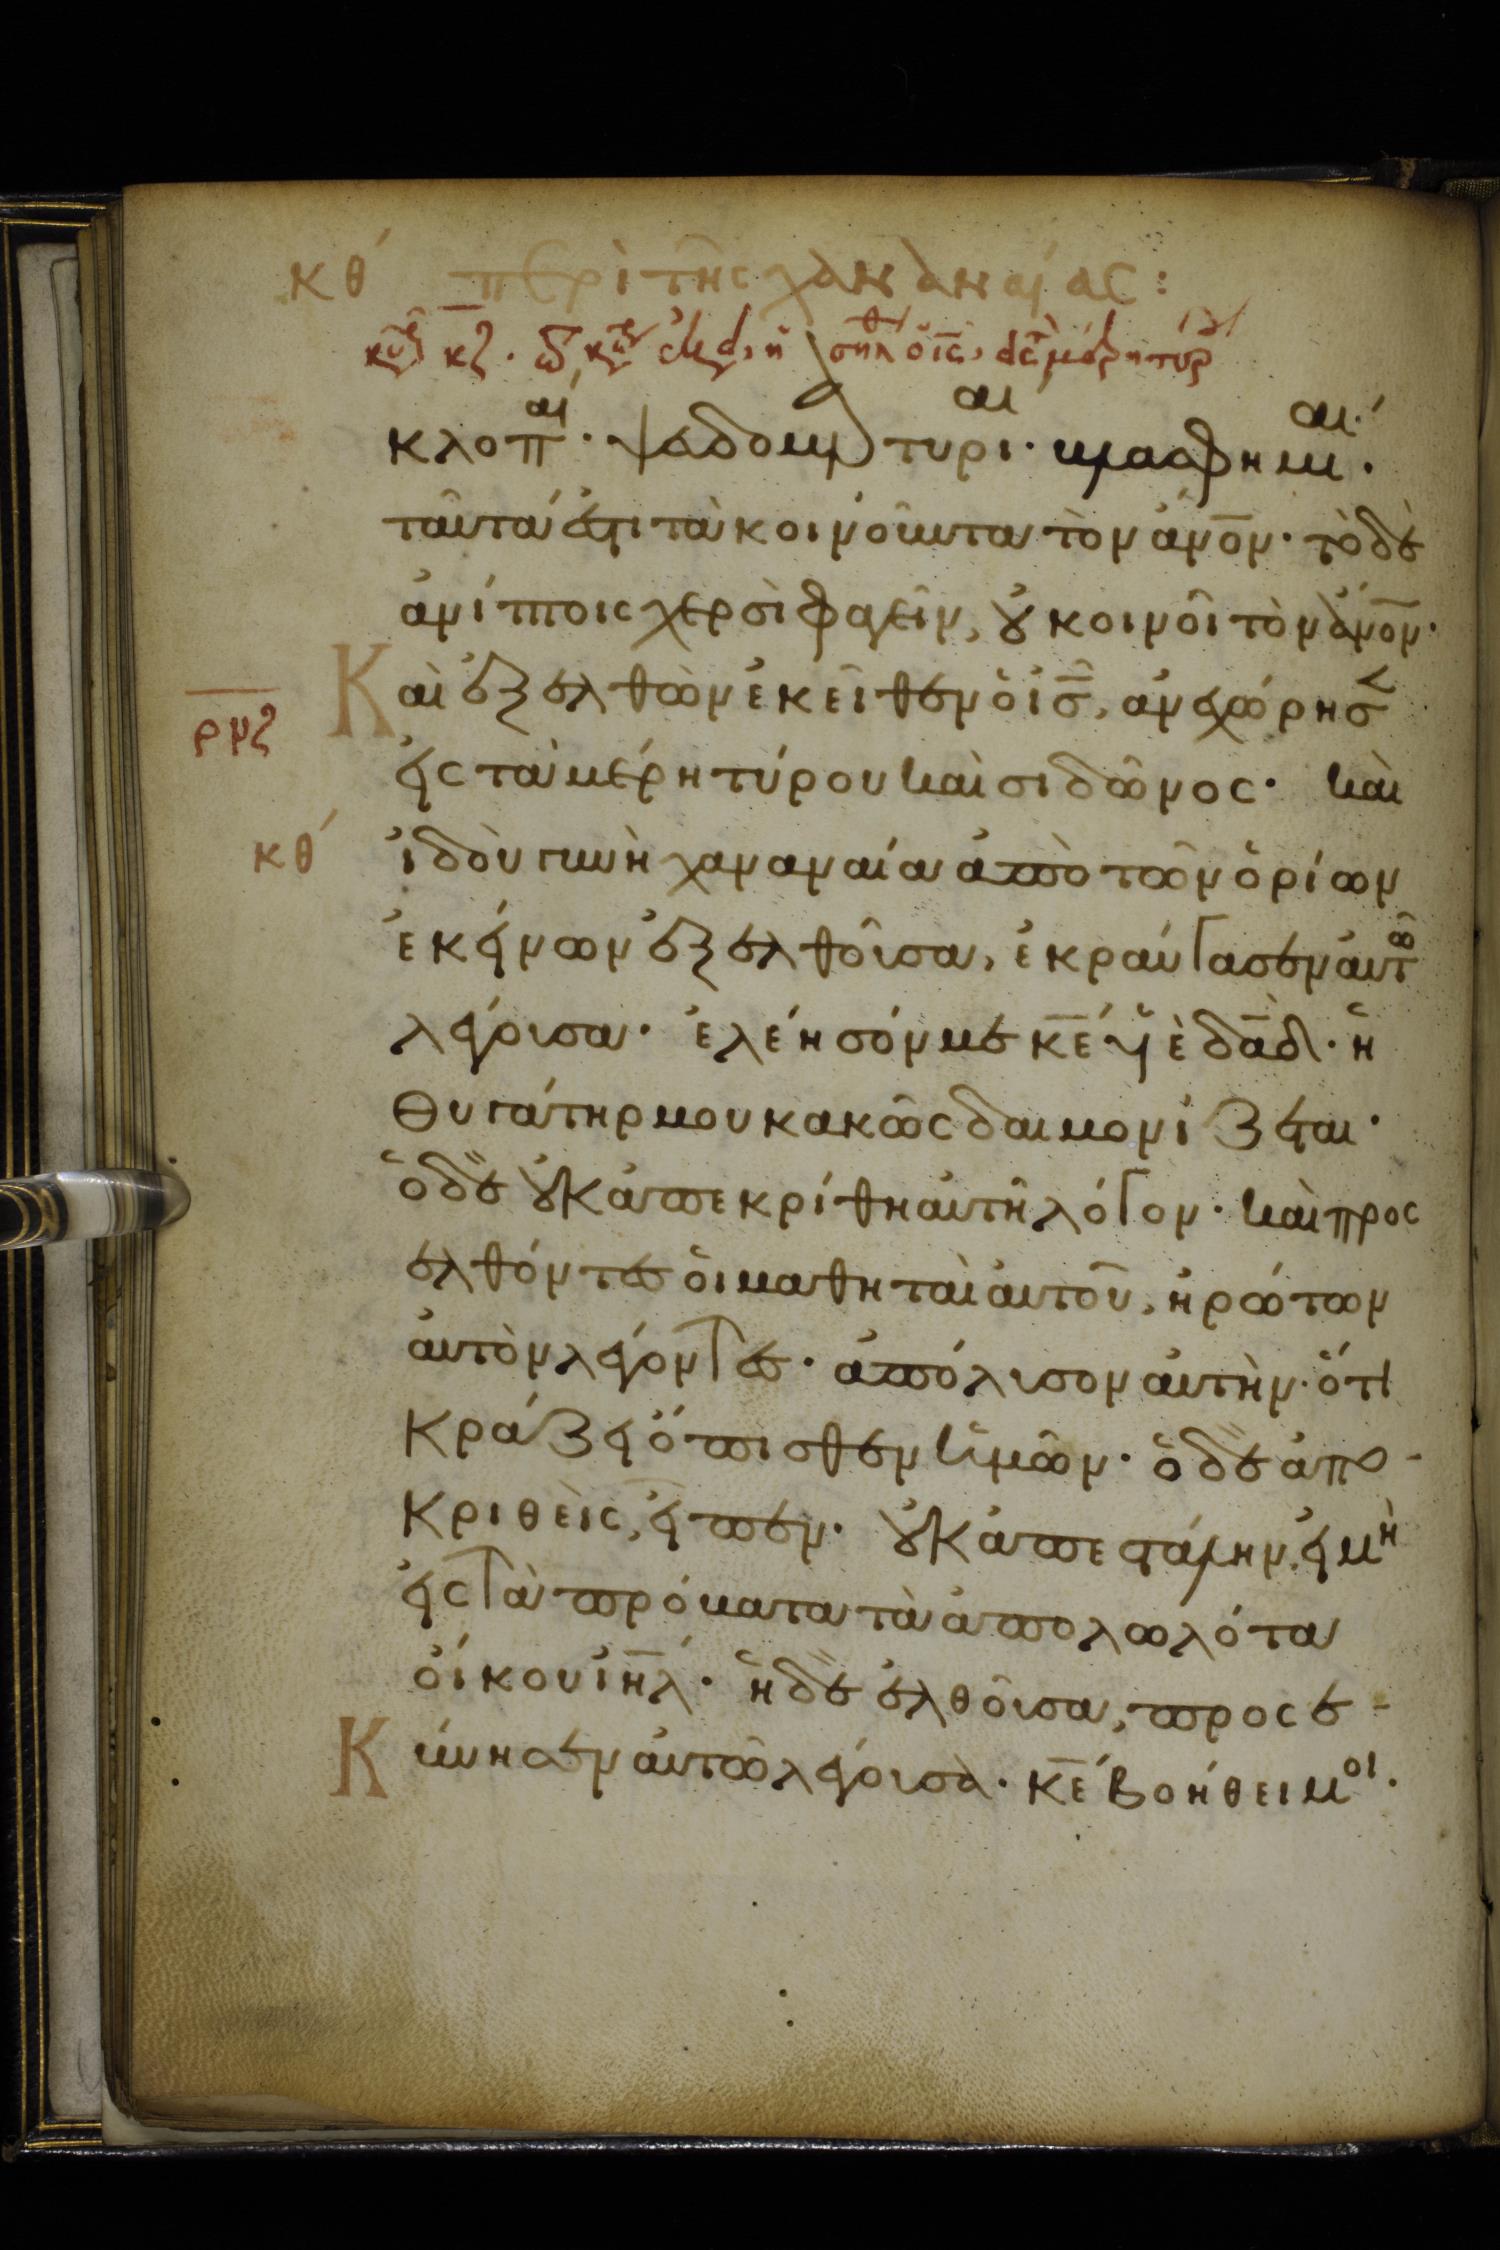 κθ´ περὶ τῆς χανὰναίας:
κλοπαί· ψευδομαρτυρίαι· βλασφημίαι·
ταῦτά ἐστι τὰ κοινοῦντα τὸν ἀν̅ο̅ν· τὸ δὲ
ἀνίπτοις χερσὶ φαγεῖν, οὐ κοινοῖ τὸν ἄν̅ο̅ν·
Καὶ ἐξελθὼν ἐκεῖθεν ὁ ἰ̅ς̅, ἀνεχώρησε
ρ̅μ̅ζ̅
εἰς τὰ μέρη τύρου καὶ σιδῶνος· καὶ
κθ´
ἰδοὺ γυνὴ χαναναία ἀπὸ τῶν ὁρίων
ἐκείνων ἐξελθοῦσα, ἐκραύγασεν αὐτῶ
λέγουσα· ἐλέησόν με κ̅ε̅ υἱὲ δα̅δ̅· ἡ
θυγάτηρ μου κακῶς δαιμονίζεται·
ὁ δὲ οὐκ ἀπεκρίθη αὐτῆ λόγον· καὶ προς
ελθόντες οἱ μαθηταὶ αὐτοῦ, ἠρώτων
αὐτὸν λέγοντες· ἀπόλυσον αὐτὴν· ὅτι
κράζει ὄπισθεν ἡμῶν· ὁ δὲ ἀπο-
κριθεὶς, εἶπεν· οὐκ ἀπεστάλην, εἰ μὴ
εἰς τὰ πρόβατα τὰ ἀπολωλότα
οἴκου ἰ̅η̅λ̅· ἡ δὲ ἐλθοῦσα, προσε-
Κύνησεν αὐτῶ λέγουσὰ· κ̅ε̅ βοήθει μοι·